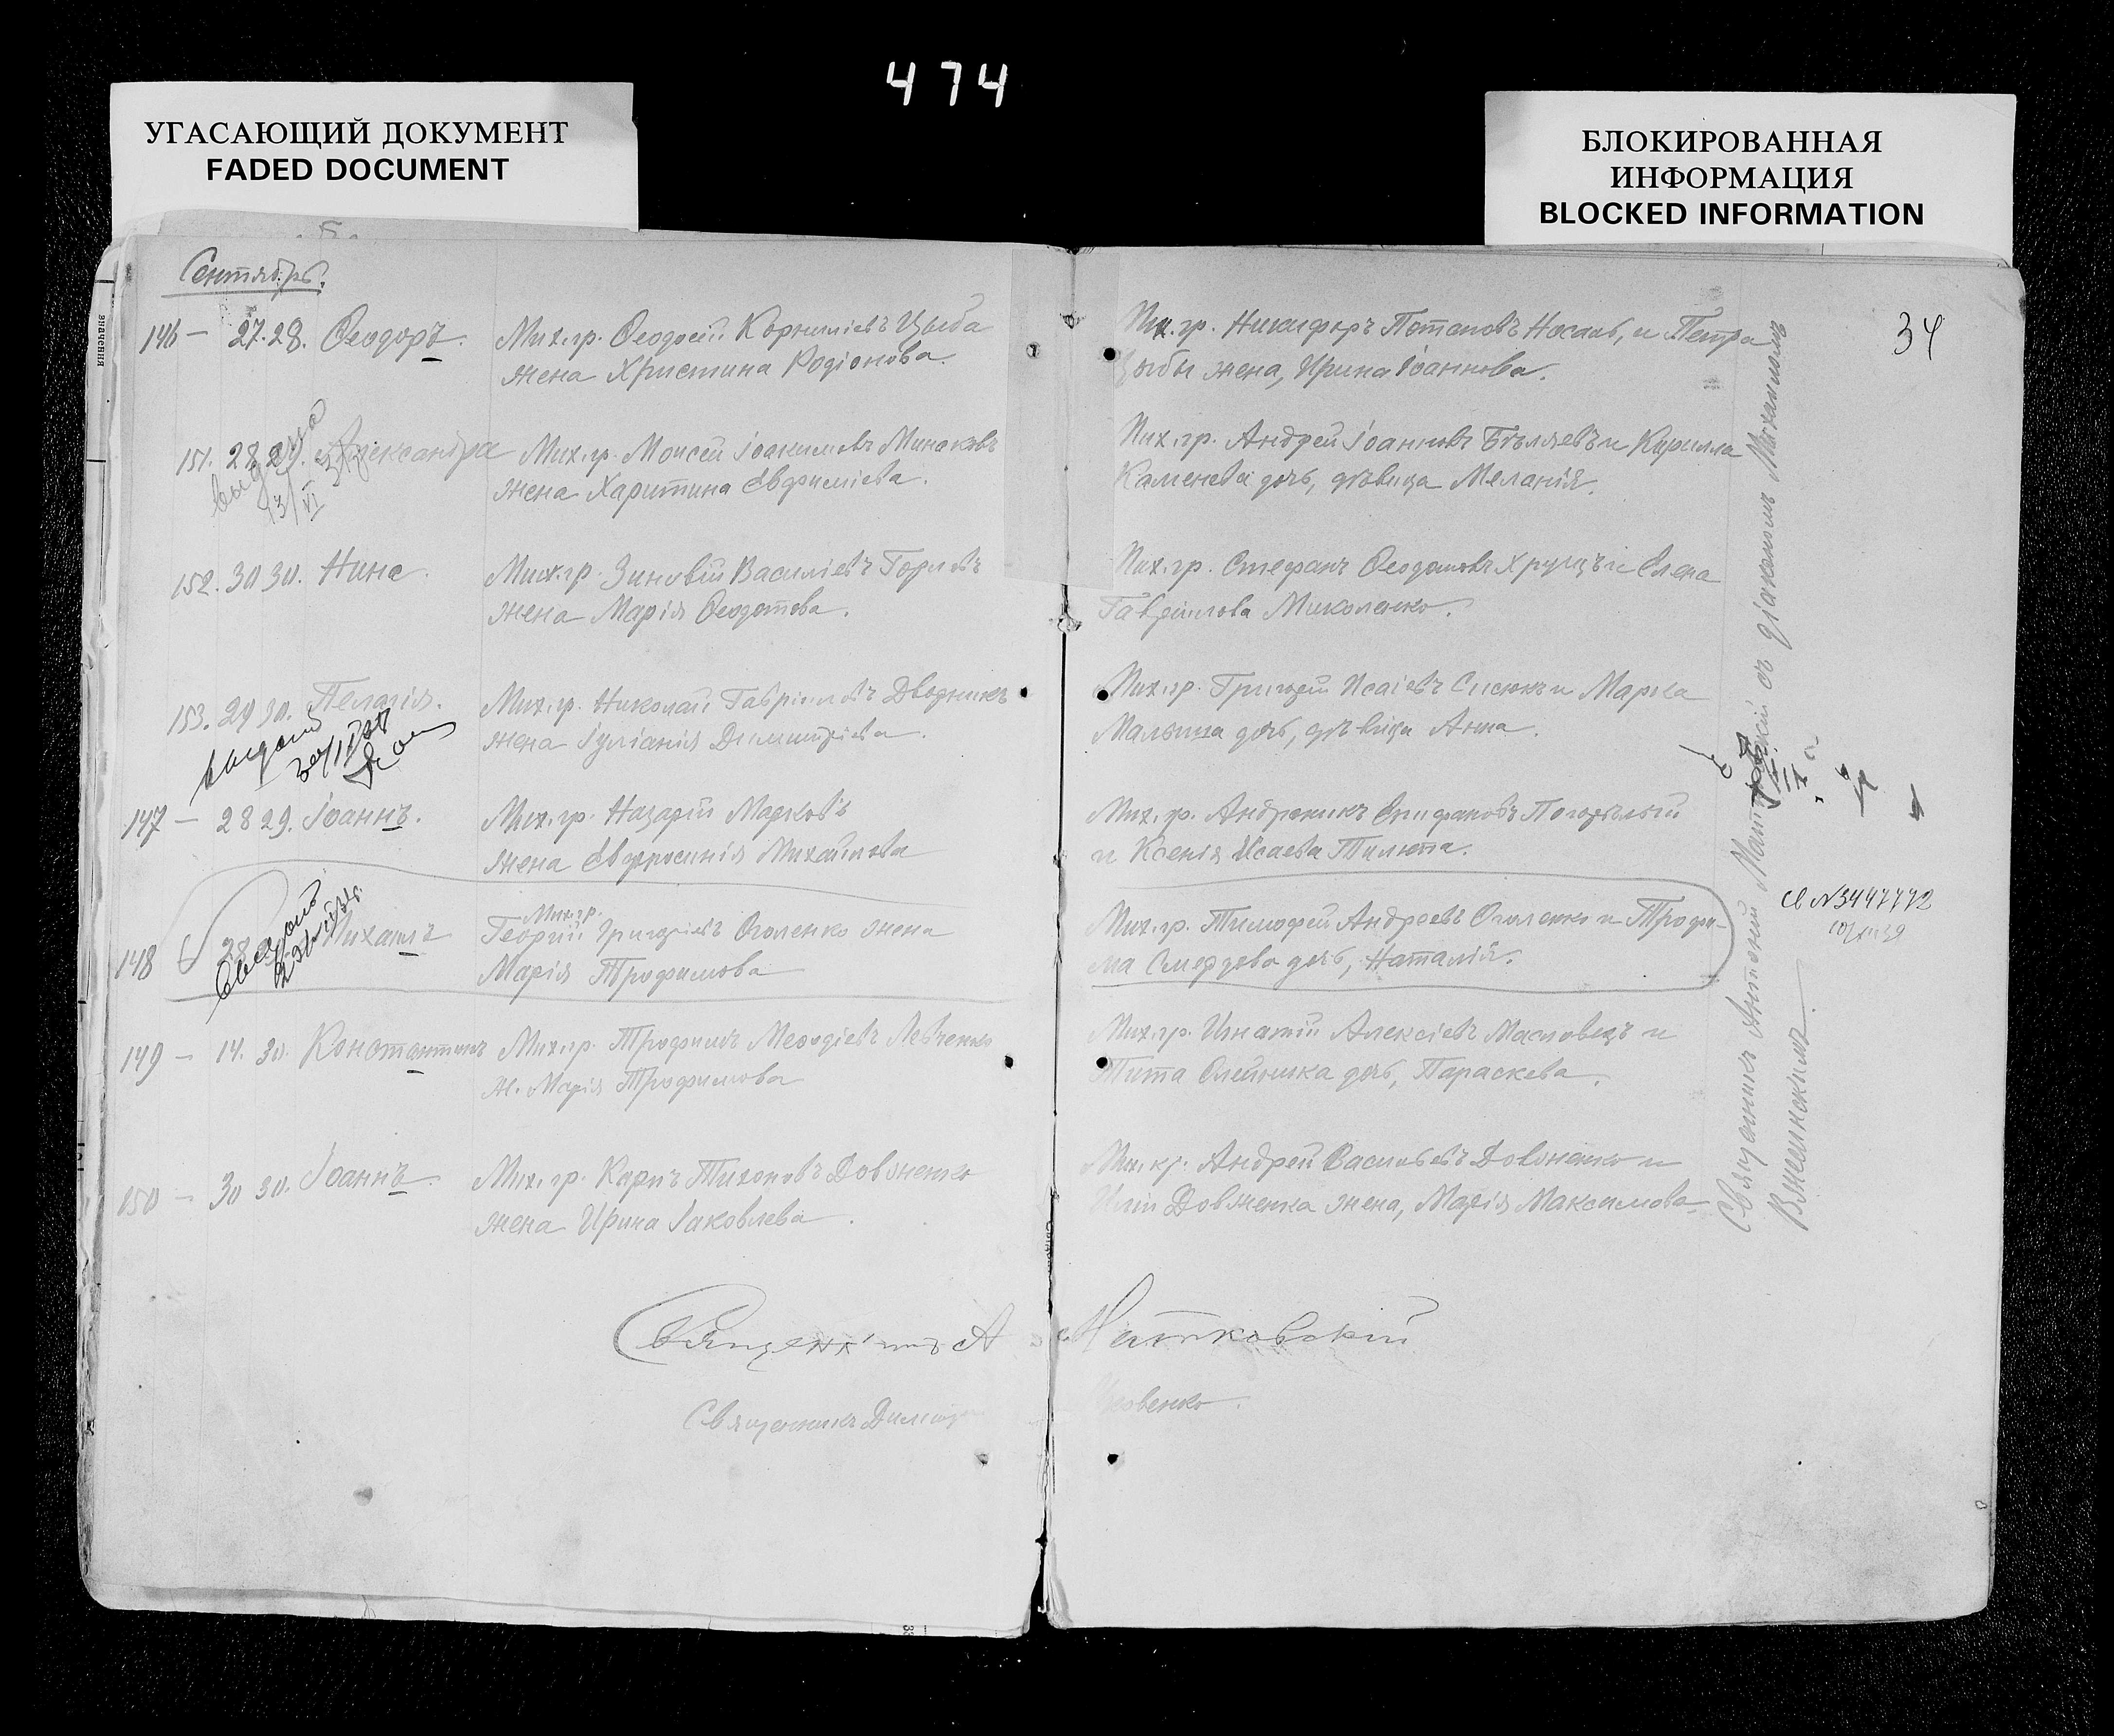 474
УГАСАЮЩИЙ ДОКУМЕНТ
FADED DOCUMENT
БЛОКИРОВАННАЯ
ИНФОРМАЦИЯ
BLOCKED INFORMATION
34
Сентябрь.
146 — 27. 28. Ѳеодоръ. Мих. гр. Ѳеодосій Корниліевъ Цыба
жена Христина Родіонова.
Мих. гр. Никифоръ Потаповъ Носань, и Петра
Цыбы жена, Ирина Іоаннова.
151. 28 29. Александра Мих. гр. Моисей Іоакимовъ Минаковъ
жена Харитина Евфиміева.
Мих. гр. Андрей Іоанновъ Бѣляевъ и Кирилла
Каменева дочь, дѣвица Меланія.
152. 30 30. Нина. Мих. гр. Зиновій Василіевъ Горловъ
жена Марія Ѳеодотова.
Мих. гр. Стефанъ Хрущъ и Елена
Гавріилова Миколенко.
153. 29 30. Пелагія. Мих. гр. Николай Гавріиловъ Дводникъ
жена Іуліанія Димитріева.
Мих. гр. Григорій Исаіевъ Сисюкъ и Марка
дочь, дѣвица Анна.
147 — 28 29. Іоаннъ. Мих. гр. Назарій Марковъ
жена Евфросинія Михайлова
Мих. гр. Андроникъ Епифановъ Погорѣлый
и Ксенія Исаева Тилюта.
148 28 Михаилъ Мих. гр.
Георгій Григоріевъ Оголенко жена
Марія Трофимова
Мих. гр. Тимофей Андреевъ Оголенко и Трофи-
ма дочь, Наталія.
св N3447772
149 — 14. 30. Константинъ Мих. гр. Трофимъ Меѳодіевъ Левченко
ж. Марія Трофимова
Мих. гр. Игнатій Алексіевъ Масловецъ и
Тита Олейника дочь, Параскева.
150 — 30 30. Іоаннъ. Мих. гр. Карпъ Тихоновъ Довженко
жена Ирина Іаковлева.
Мих. кр. Андрей Васильевъ Довженко и
Иліи Довженка жена, Марія Максимова
Священникъ Антоній Матковскій съ діакономъ Михаиломъ
Священникъ А Матковскій
Священникъ